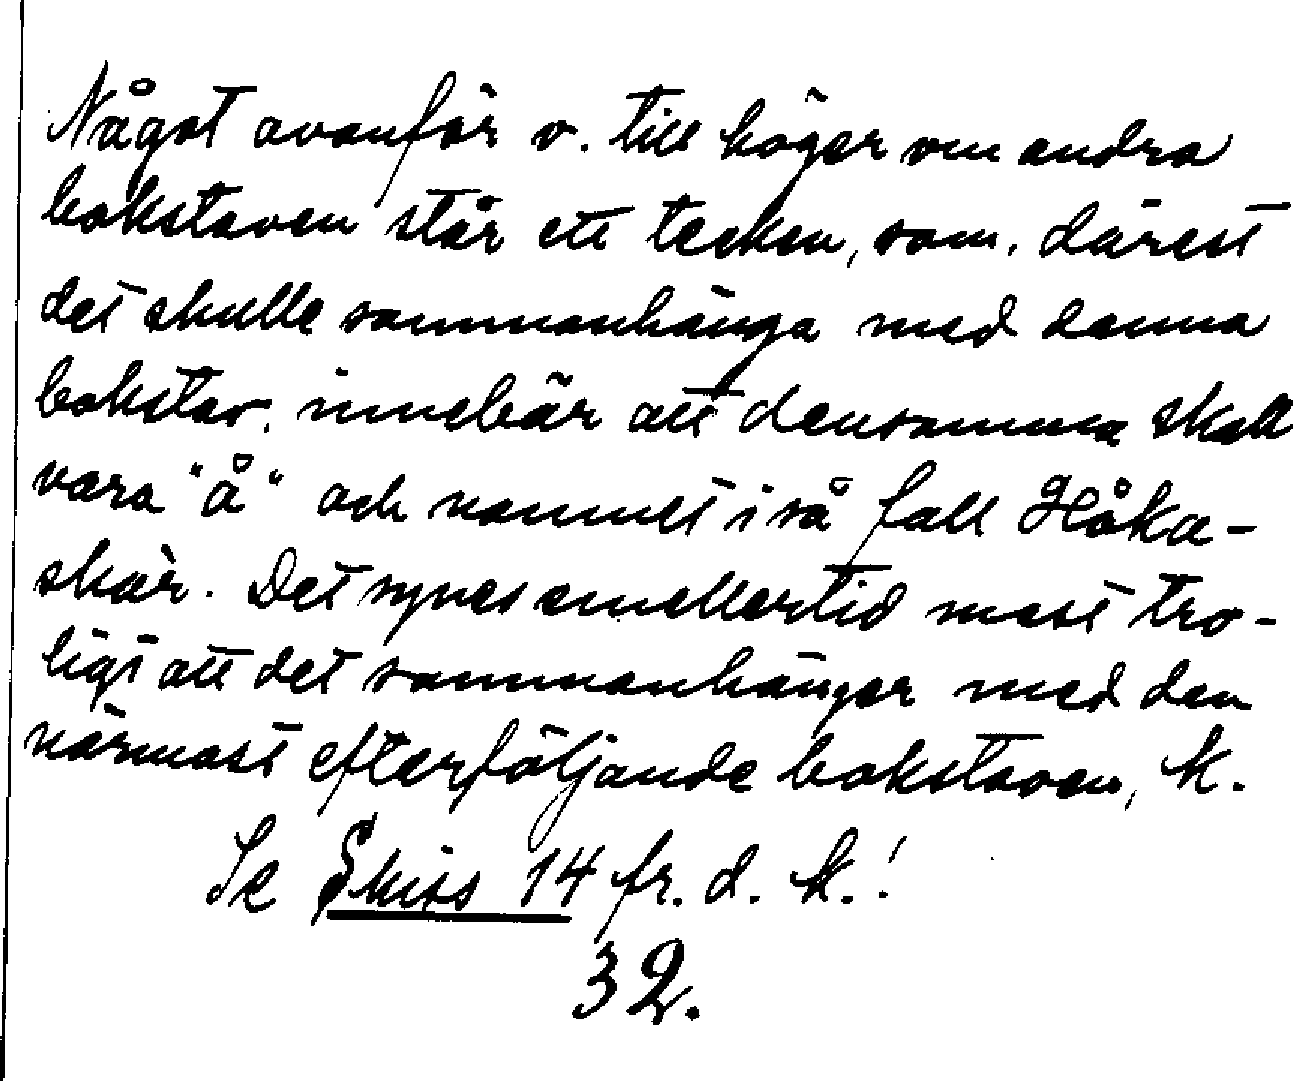 Något ovanför o. till höger om andra
bokstaven står ett tecken, som, därest
det skulle sammanhänga med denna
bokstav, innebär att densamma skall
vara "å" och namnet i så fall Håka-
skär. Det synes emellertid mest tro-
ligt att det sammanhänger med den
närmast efterföljande bokstaven, k.
Se Skiss 14 fr. d. k.!
32.